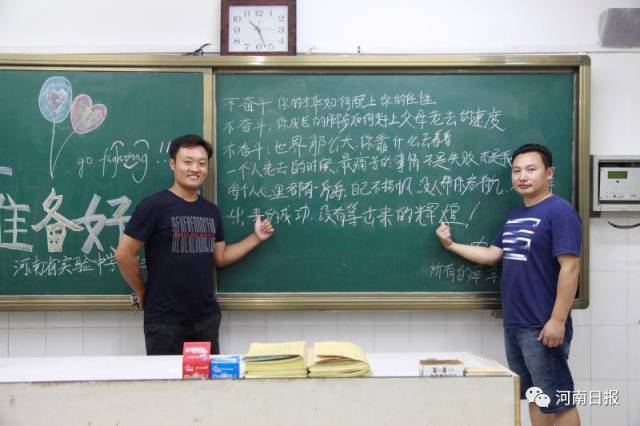 go fighting!!!
准备好
河南省实验中学
不奋斗，你的才华如何配上你的任性
不奋斗，你成长的脚步如何赶上父母老去的速度
不奋斗，世界那么大，你靠什么去看看
一个人老去的时候，最痛苦的事情不是失败，而是我
每个人心里都有一片海，自己不扬帆，没人帮你启航，
出来的成功，没有等出来的辉煌！
所有的
河南日报